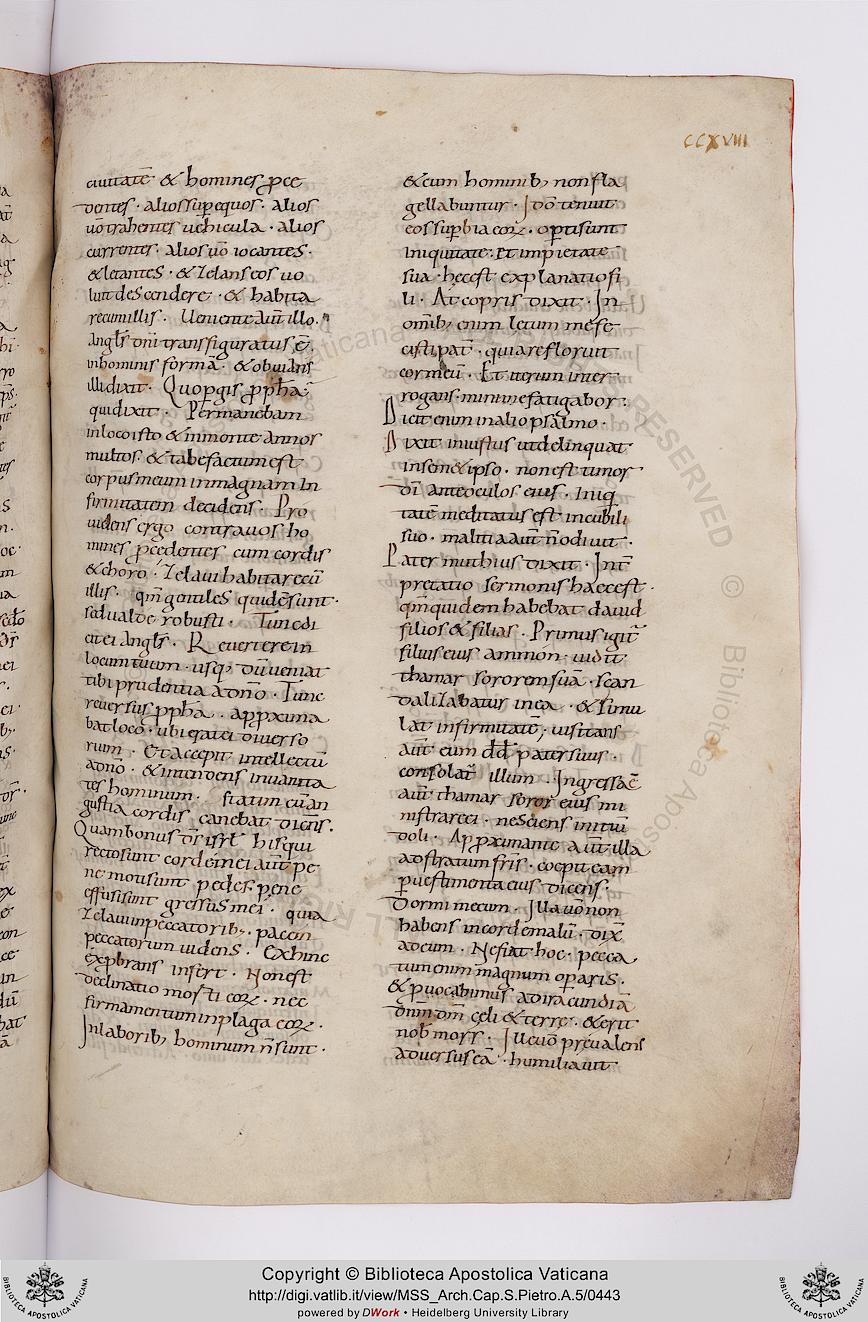 CCXVIII
ciuitatē & homines p̄ce
dentes · alios sup equos · alios
uō trahentes uehicula · alios
currentes · alios uō iocantes ·
& letantes · & zelans eos uo
luit descendere · & habita
re cum illis · Ueniente aūt illo ·
angls dn̄i transfiguratus ē
in hominis formā · & obuians
illi dixit · Quo p̄gis pp̄ha
qui dixit · Permanebam
in loco isto & in monte annos
multos · & tabefactum est
corpus meum in magnam in
firmitatem decidens · Pro
uidens ergo contra uos ho
mines p̄cedentes cum cordis
& choro · Zelaui habitare cū
illis · qm̄ gentiles quidē sunt ·
sed ualde robusti · Tunc di
cit ei angls · Reuertere in
locum tuum · usq; dū ueniat
tibi prudentia a dn̄o · Tunc
reuersus pp̄ha · appxima
bat loco · ubi erat ei diuerso
rium · Et accepit intellectū
a dn̄o · & intendens in uanita
tes hominum · statim cū an
gustia cordis canebat dicens ·
Quam bonus ds̄ isrl̄ his qui
recto sunt corde mei aūt pe
ne moti sunt pedes · pene
effusi sunt gressus mei · quia
zelaui in peccatorib; · pacem
peccatorum uidens · Exhinc
exp̄brans infert · Non est
declinatio morti eorum · nec
firmamentum in plaga eorum ·
In laborib; hominum n̄ sunt ·
& cum hominib; non fla
gellabuntur · Idō tenuit
eos supbia eorum · opti sunt
iniquitate · et impietate
sua · hec est explanatio si
li · At copris dixit · In
omib; enim letum me fe
cisti pat · quia refloruit
cor meū · Et iterum inter
rogans · minime fatigabor ·
Dicit enim in alio psalmo ·
Dixit iniustus ut delinquat
in sem&ipso · non est timor
dī ante oculos eius · Iniq
tatē meditatus est in cubili
suo · malitia aūt n̄ odiuit ·
Pater muthius dixit · Int
pretatio sermonis haec est ·
qm̄ quidem habebat dauid
filios & filias · Primus igit
filius eius ammon · uidit
thamar sororem suā · scan
dalizabatur in ea · & simu
lat infirmitatē; uisitans
aūt eum dd̄ pater suus ·
consolat illum · Ingressa ē
aūt thamar soror eius mi
nistrare ei · nesciens initiū
doli · Appximante aūt illa
ad stratum fr̄is · coepit eam
p uestimenta eius dicens ·
Dormi mecum · Illa uō non
habens in corde malū · dix
ad eum · Ne fiat hoc · pecca
tum enim magnum oparis ·
& puocabimus ad iracundiā
dnm dm̄ celi & terre · & erit
nob mors · Ille uō preualens
aduersus eā · humiliauit
Copyright © Biblioteca Apostolica Vaticana
http://digi.vatlib.it/view/MSS_Arch.Cap.S.Pietro.A.5/0443
powered by DWork • Heidelberg University Library